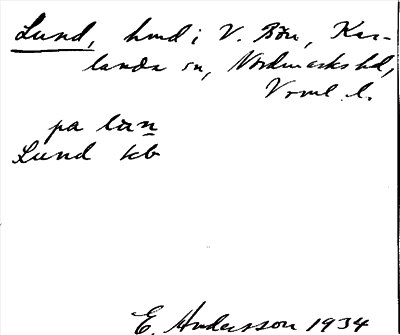 Lund, hmd i V. Bön, Kar-
landa sn, Nordmarks hd,
Vrml. l.
pa lun
Lund kb
E. Andersson 1934